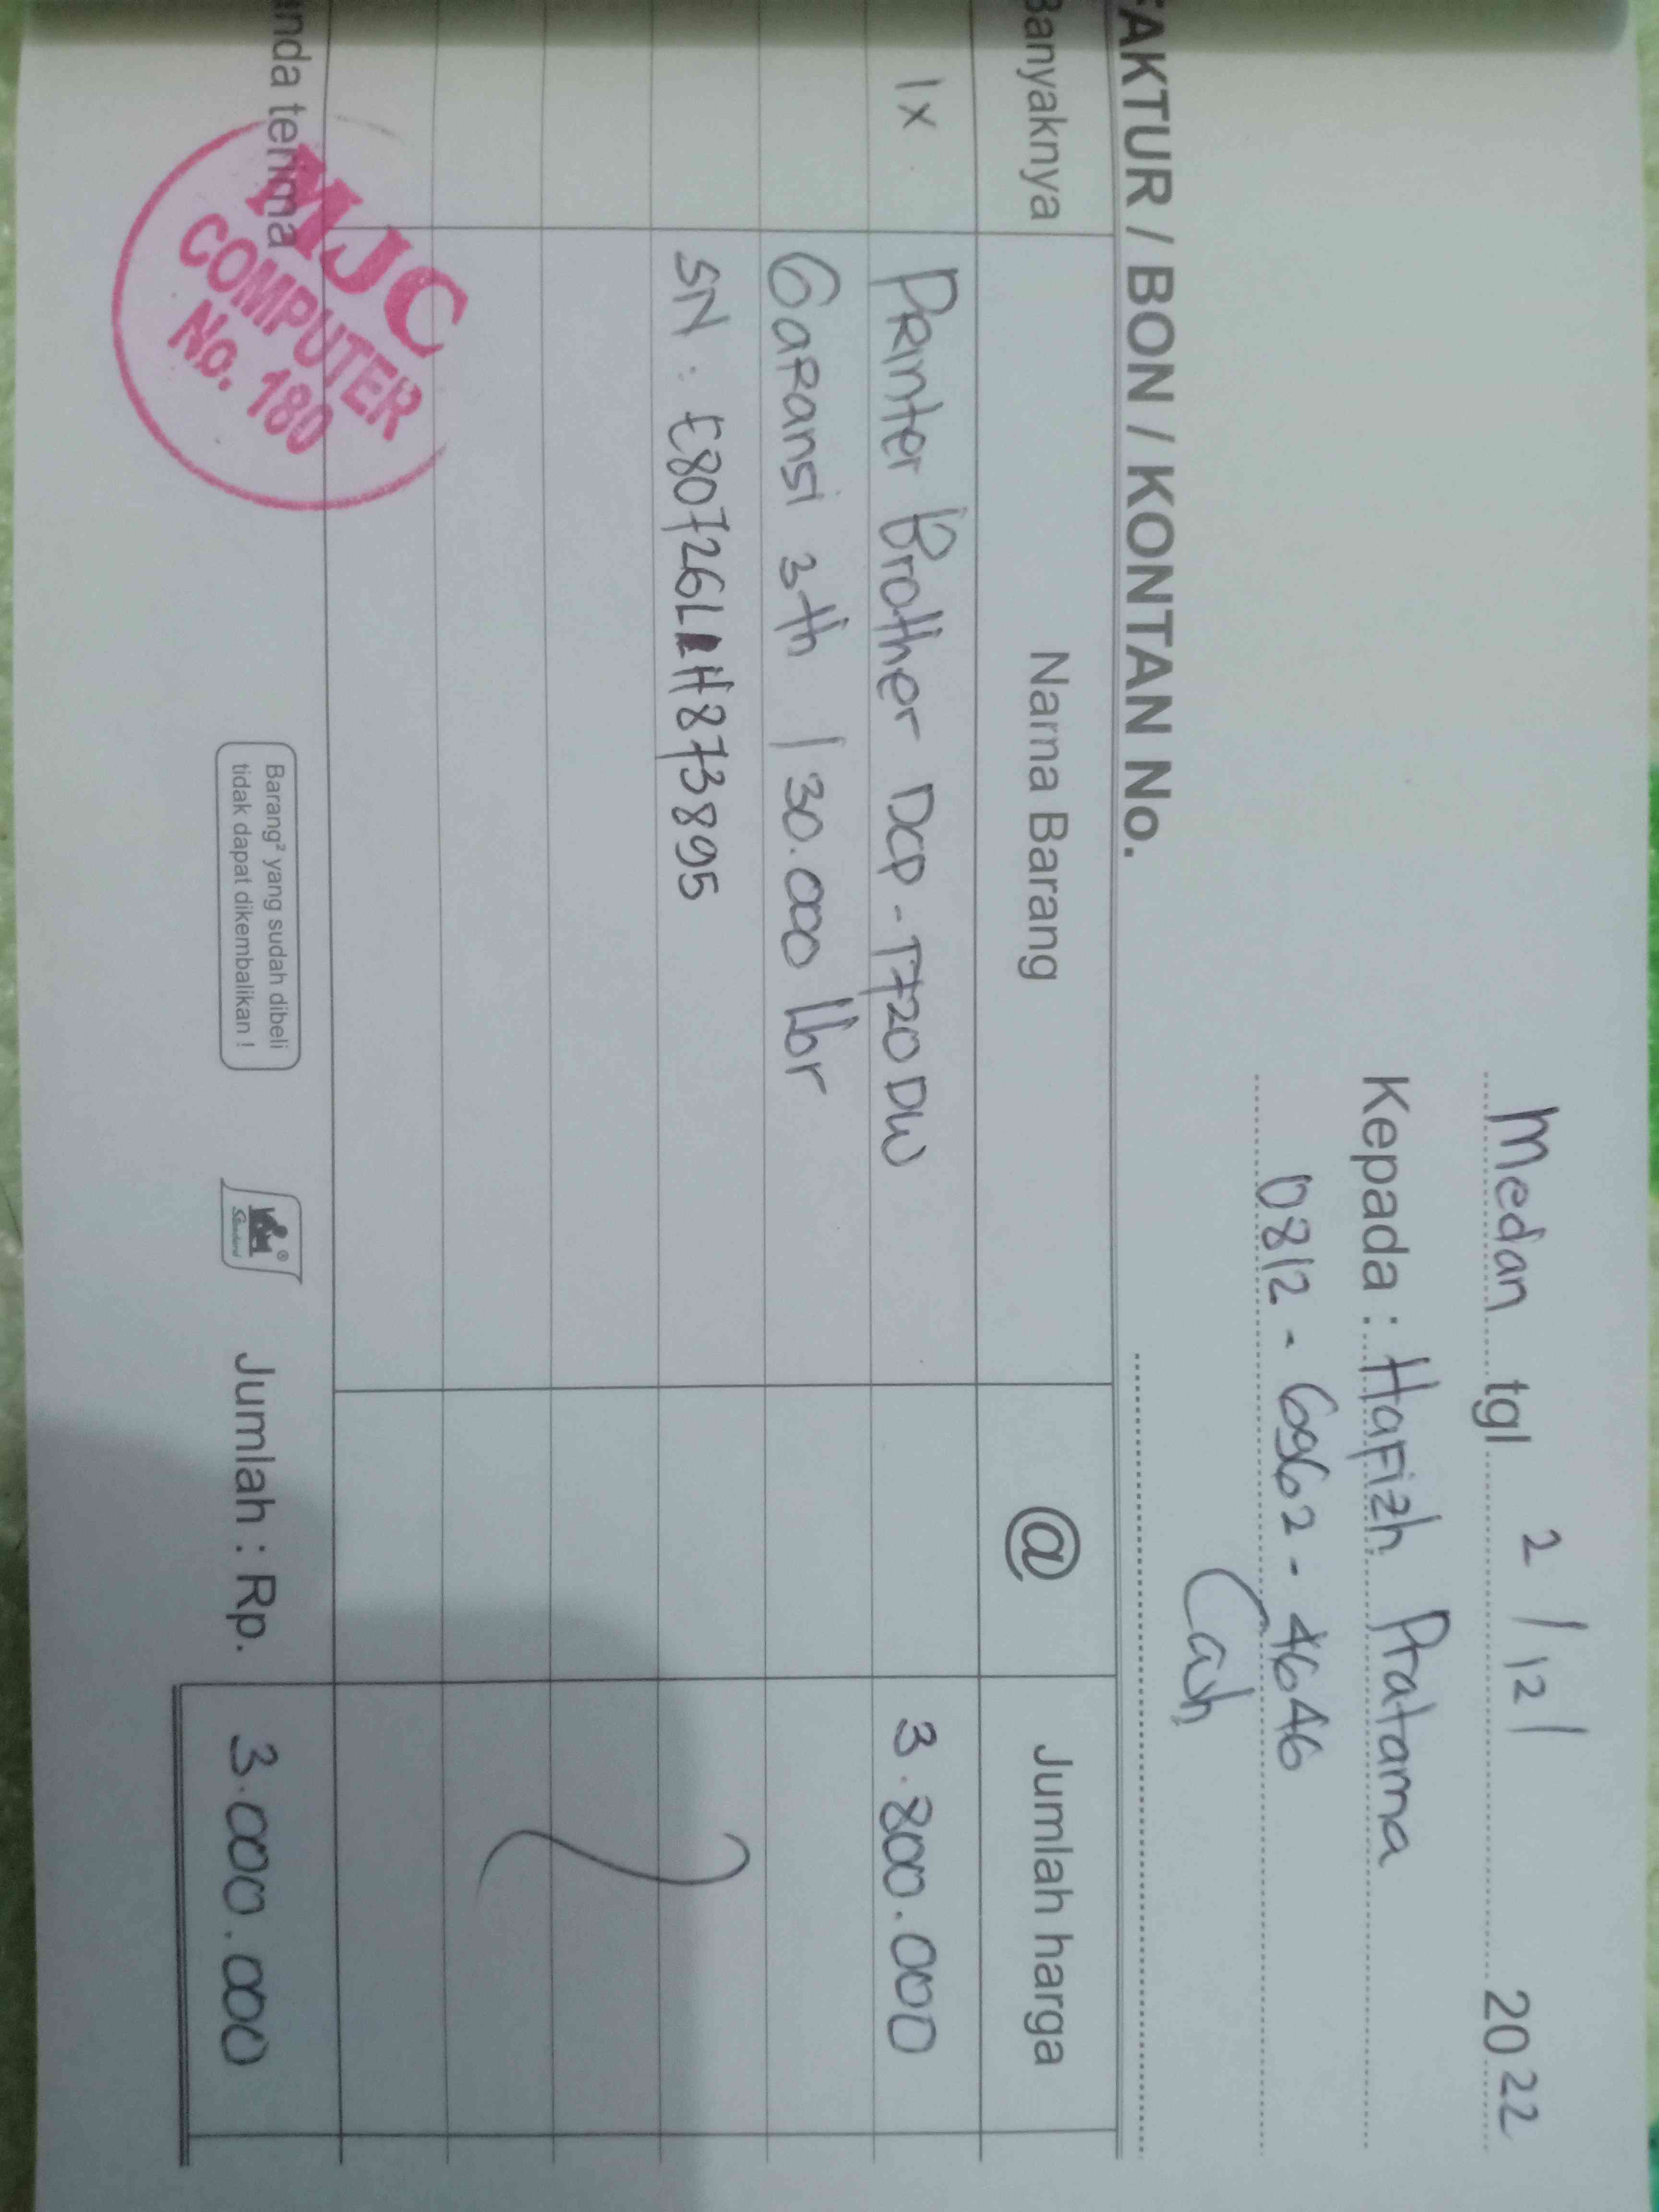 Medan tgl 2/12/ 2022
Kepada : Hafizh Pratama
0812 - 6962 - 4646
Cash
FAKTUR / BON / KONTAN No.
Banyaknya Nama Barang @ Jumlah harga
1x Printer Brother DCP - T720DW 3.800.000
Garansi 3th / 30.000 lbr
SN : E80726L H873895
anda terima
MJC
COMPUTER
No. 180
Barang² yang sudah dibeli
tidak dapat dikembalikan !
Standard
Jumlah : Rp. 3.000.000